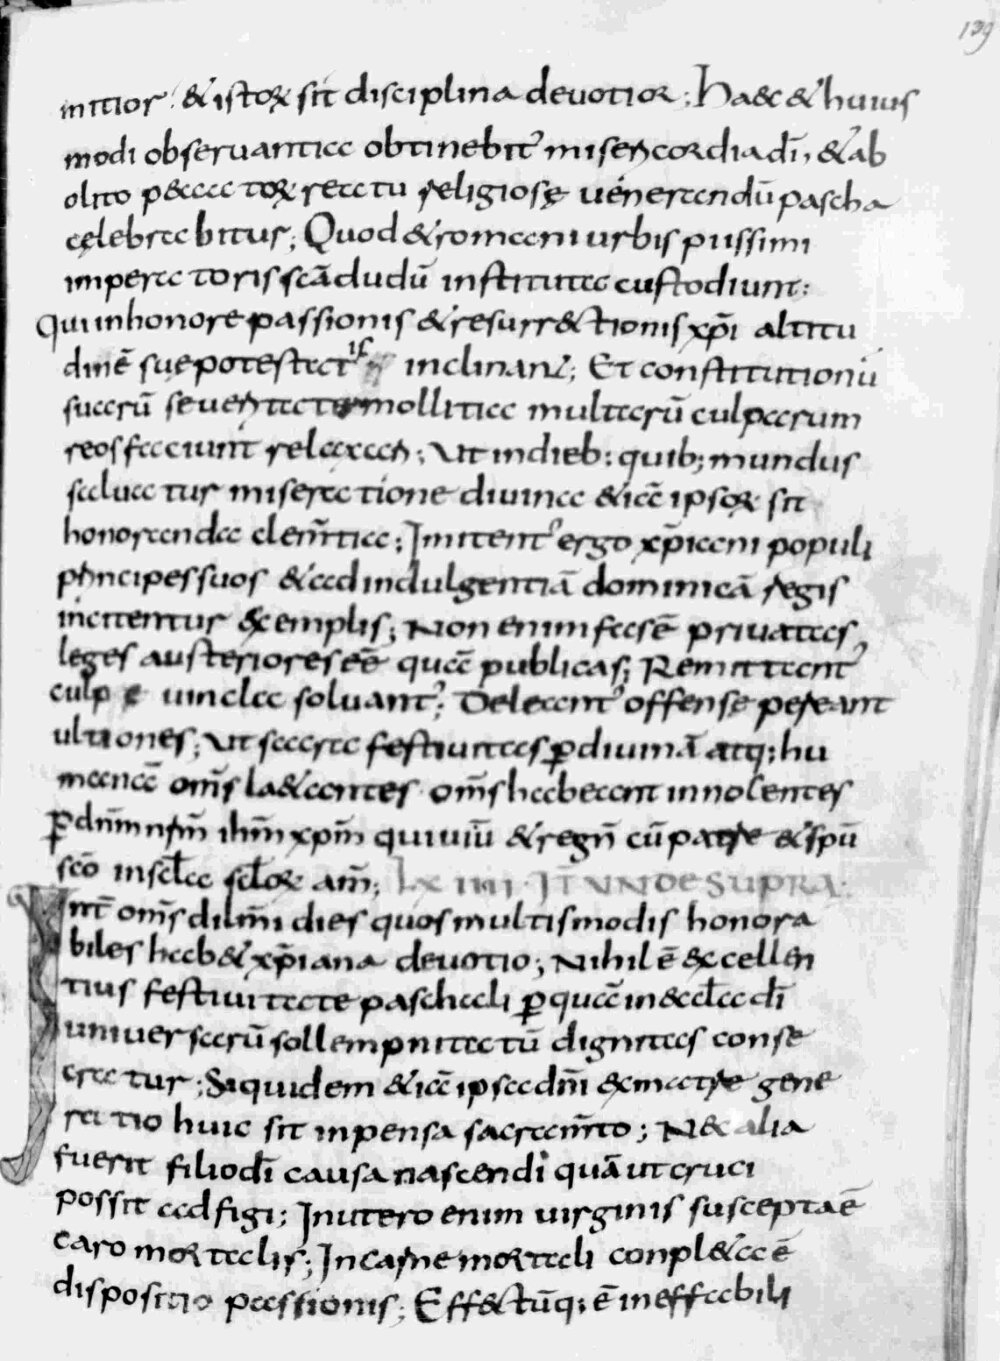 139
mitior; & istorum sit disciplina devotior; Ha&c & huius
modi observantia obtinebit̉ misericordia dī, & ab
olito p&ccatorum reatu religiose venerandū pascha
cęlebrabitur; Quod & romani urbis piissimi
imperatoris scā dudū instituta custodiunt;
Qui in honore passionis & resurr&ctionis xp̄i altitu
dinē suę potestatis inclinant̉; Et constitutionū
suarū severitate mollita multarū culparum
reos faciunt relaxari; Ut in dieb; quib; mundus
salvatur miseratione divina &iā ipsorum sit
honoranda clem̄tia; Imitent̉ ergo xp̄iani populi
principes suos & ad indulgentiā dominicā regis
incitentur &xemplis; Non enim fas ē privatas
leges austeriores eē quā publicas; Remittant̉
culpę vincla solvant̉; Deleant̉ offensę pereant
ultiones; Ut sacra festivitas ꝑ divinā atq; hu
manā om̄s la&antes om̄s habeant innocentes
ꝑ dn̄m nr̄m ihm̄ xp̄m qui vivit & regn̄ cū patre & spū
scō in scl̄a scl̄orum am̄; LXIIII ITUNDE SUPRA:
Int̄ om̄s dilm̄i dies quos multis modis honora
biles hab& xp̄iana devotio; Nihil ē &xcellen
tius festivitate paschali ꝑ quā in &ccl̄a dī
universarū sollempnitatū dignitas conse
cratur; Siquidem &iā ipsa dn̄i &x matre gene
ratio huic sit inpensa sacram̄to; Nec alia
fuerit filio dī causa nascendi quā ut cruci
possit adfigi; In utero enim virginis suscepta ē
caro mortalis; In carne mortali conpl&a ē
dispositio passionis; Eff&ctūq; ē ineffabili